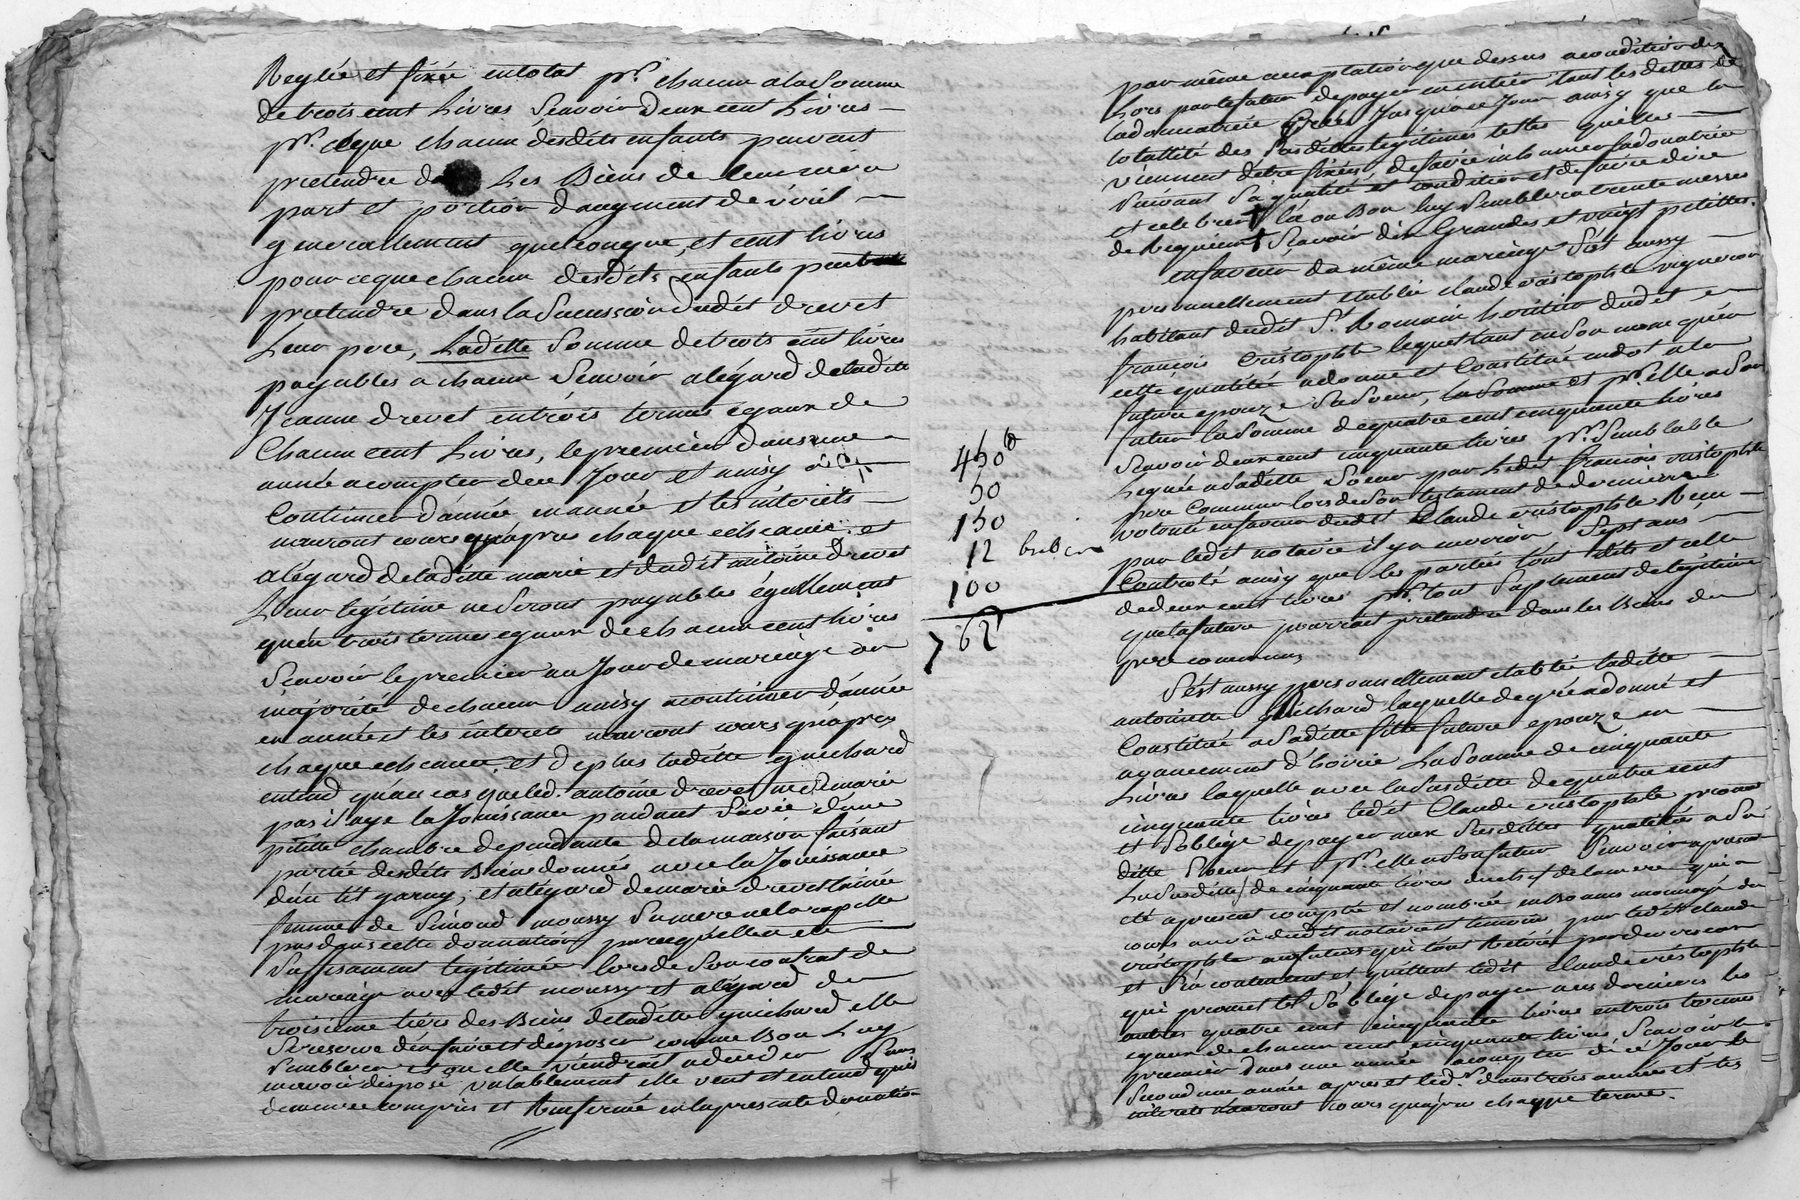 Reglée et fixée entotal pr. chacun alasomme
detrois cent Livres Scavoir Deux cent Livres
pr. ceque chacun desdits enfants peuvent
pretendre Les Biens de leur mere
part et portion daugment de
generallement quelconque, et cent livres
pour ceque chacun desdits enfants peut
pretendre dans la Succession dudit drevet
Leur pere, Ladette Somme detrois cent livres
payables a chacun Scavoir alégard deladitte
Jeanne drevet entrois termes égaux de
Chacun cent Livres, lepremier Dans une
année acompter dece Jour et ainsy
Continuer d'année enannée et les intérets
nauront cours quapres chaque echeance et
alégard deladitte marie et dudit antoine drevet
Leur légitime ne Seront payables égallement
quen trois termes egaux de chacun cent livres
Scavoir lepremier au Jour de mariage ou
majorité dechacun ainsy acontinuer d'année
en année et les intérets nauront cours quapres
chaque echeance, et deplus ladite guichard
entend quau cas queled. antoine drevet
pas il aye la Jouissance pandant Savie d'une
petitte chambre dependante de la maison faisant
partie desdits Biens donnés avec la Jouissance
d'un lit garny; et alégard de marie drevet lainée
femme de Simond moussy Samere nelarapelle
pas dans cette donnation parcequelle a eté
Suffisament legitimée lors de Son contrat de
mariage avec ledit moussy et alégard du
troisieme tiers des Biens deladitte guichard elle
Sereserve den faire et disposer comme Bon Luy
Semblera et ou elle viendrait adeceder Sans
enavoir disposé valablement elle veut et entend quil
demeure compris et Renfermé en la presente donation
par même acceptation que dessus acondition
Lors par lefutur depayer en entier tout les dettes de
ladonnatrice Jusqua ce Jour ainsy que la
totallité des Susdittes legitimes telles quelles
viennent d'être fixées, defaire inhumer ladonatrice
Suivant Sa qualité et condition et de faire dire
et celebrer la ou Bon luy Semblera trente messes
de Requiem Scavoir dix Grandes et vingt petittes.
enfaveur du même mariage S'est aussy
personnellement etablie claude cristophle vigneron
habitant dudit St. Romain heritier dudit
françois Cristophle lequel tant enson nom quen
cette qualité adonné et Constitué endot ala
future epouze Sa Soeur, la somme et pr. elle a Son
futur la Somme dequatre cent cinquante livres
Scavoir deux cent cinquante livres pr. Semblable
Leguée a Saditte Soeur par Ledit françois cristophle
pere Commun lors de Son testament de derniere
volonté enfaveur dudit Claude cristophle Recu
par ledit notaire il y a environ Sept ans,
Controlé ainsy que les parties lont dits et celle
dedeux cent livres pr. tout Suplement de légitime
que la future pourroit pretendre dans les Biens du
pere commun
S'est aussy personnellement etablie laditte
antoinette guichard laquelle de gré a donné et
Constitué a Saditte fille future epouze en
avancement d'hoirie La Somme de cinquante
Livres laquelle avec la Susditte dequatre cent
cinquante livres ledit Claude cristophle promet
et Soblige depayer aux Susdittes qualités a Sa
ditte Soeur et pr. elle a Son futur Scavoir apresent
La Susditte de cinquante livres de la mere qui a
eté apresent comptée et nombrée en Bonnes monnoyes du
cours au vû dudit notaire et temoins par ledit claude
cristophle aufuturs qui lont Retiré pardevers eux
et S'en contentent et quittent ledit Claude cristophle
qui promet et S'oblige depayer aux derniers les
autres quatre cent cinquante livres entrois termes
egaux de chacun cent cinquante livres Scavoir le
premier dans une année acompter de ce Jour le
Second une année apres et led. dans trois années et les
interets nauront cours quapres chaque terme.
450
50
150
12
100
762